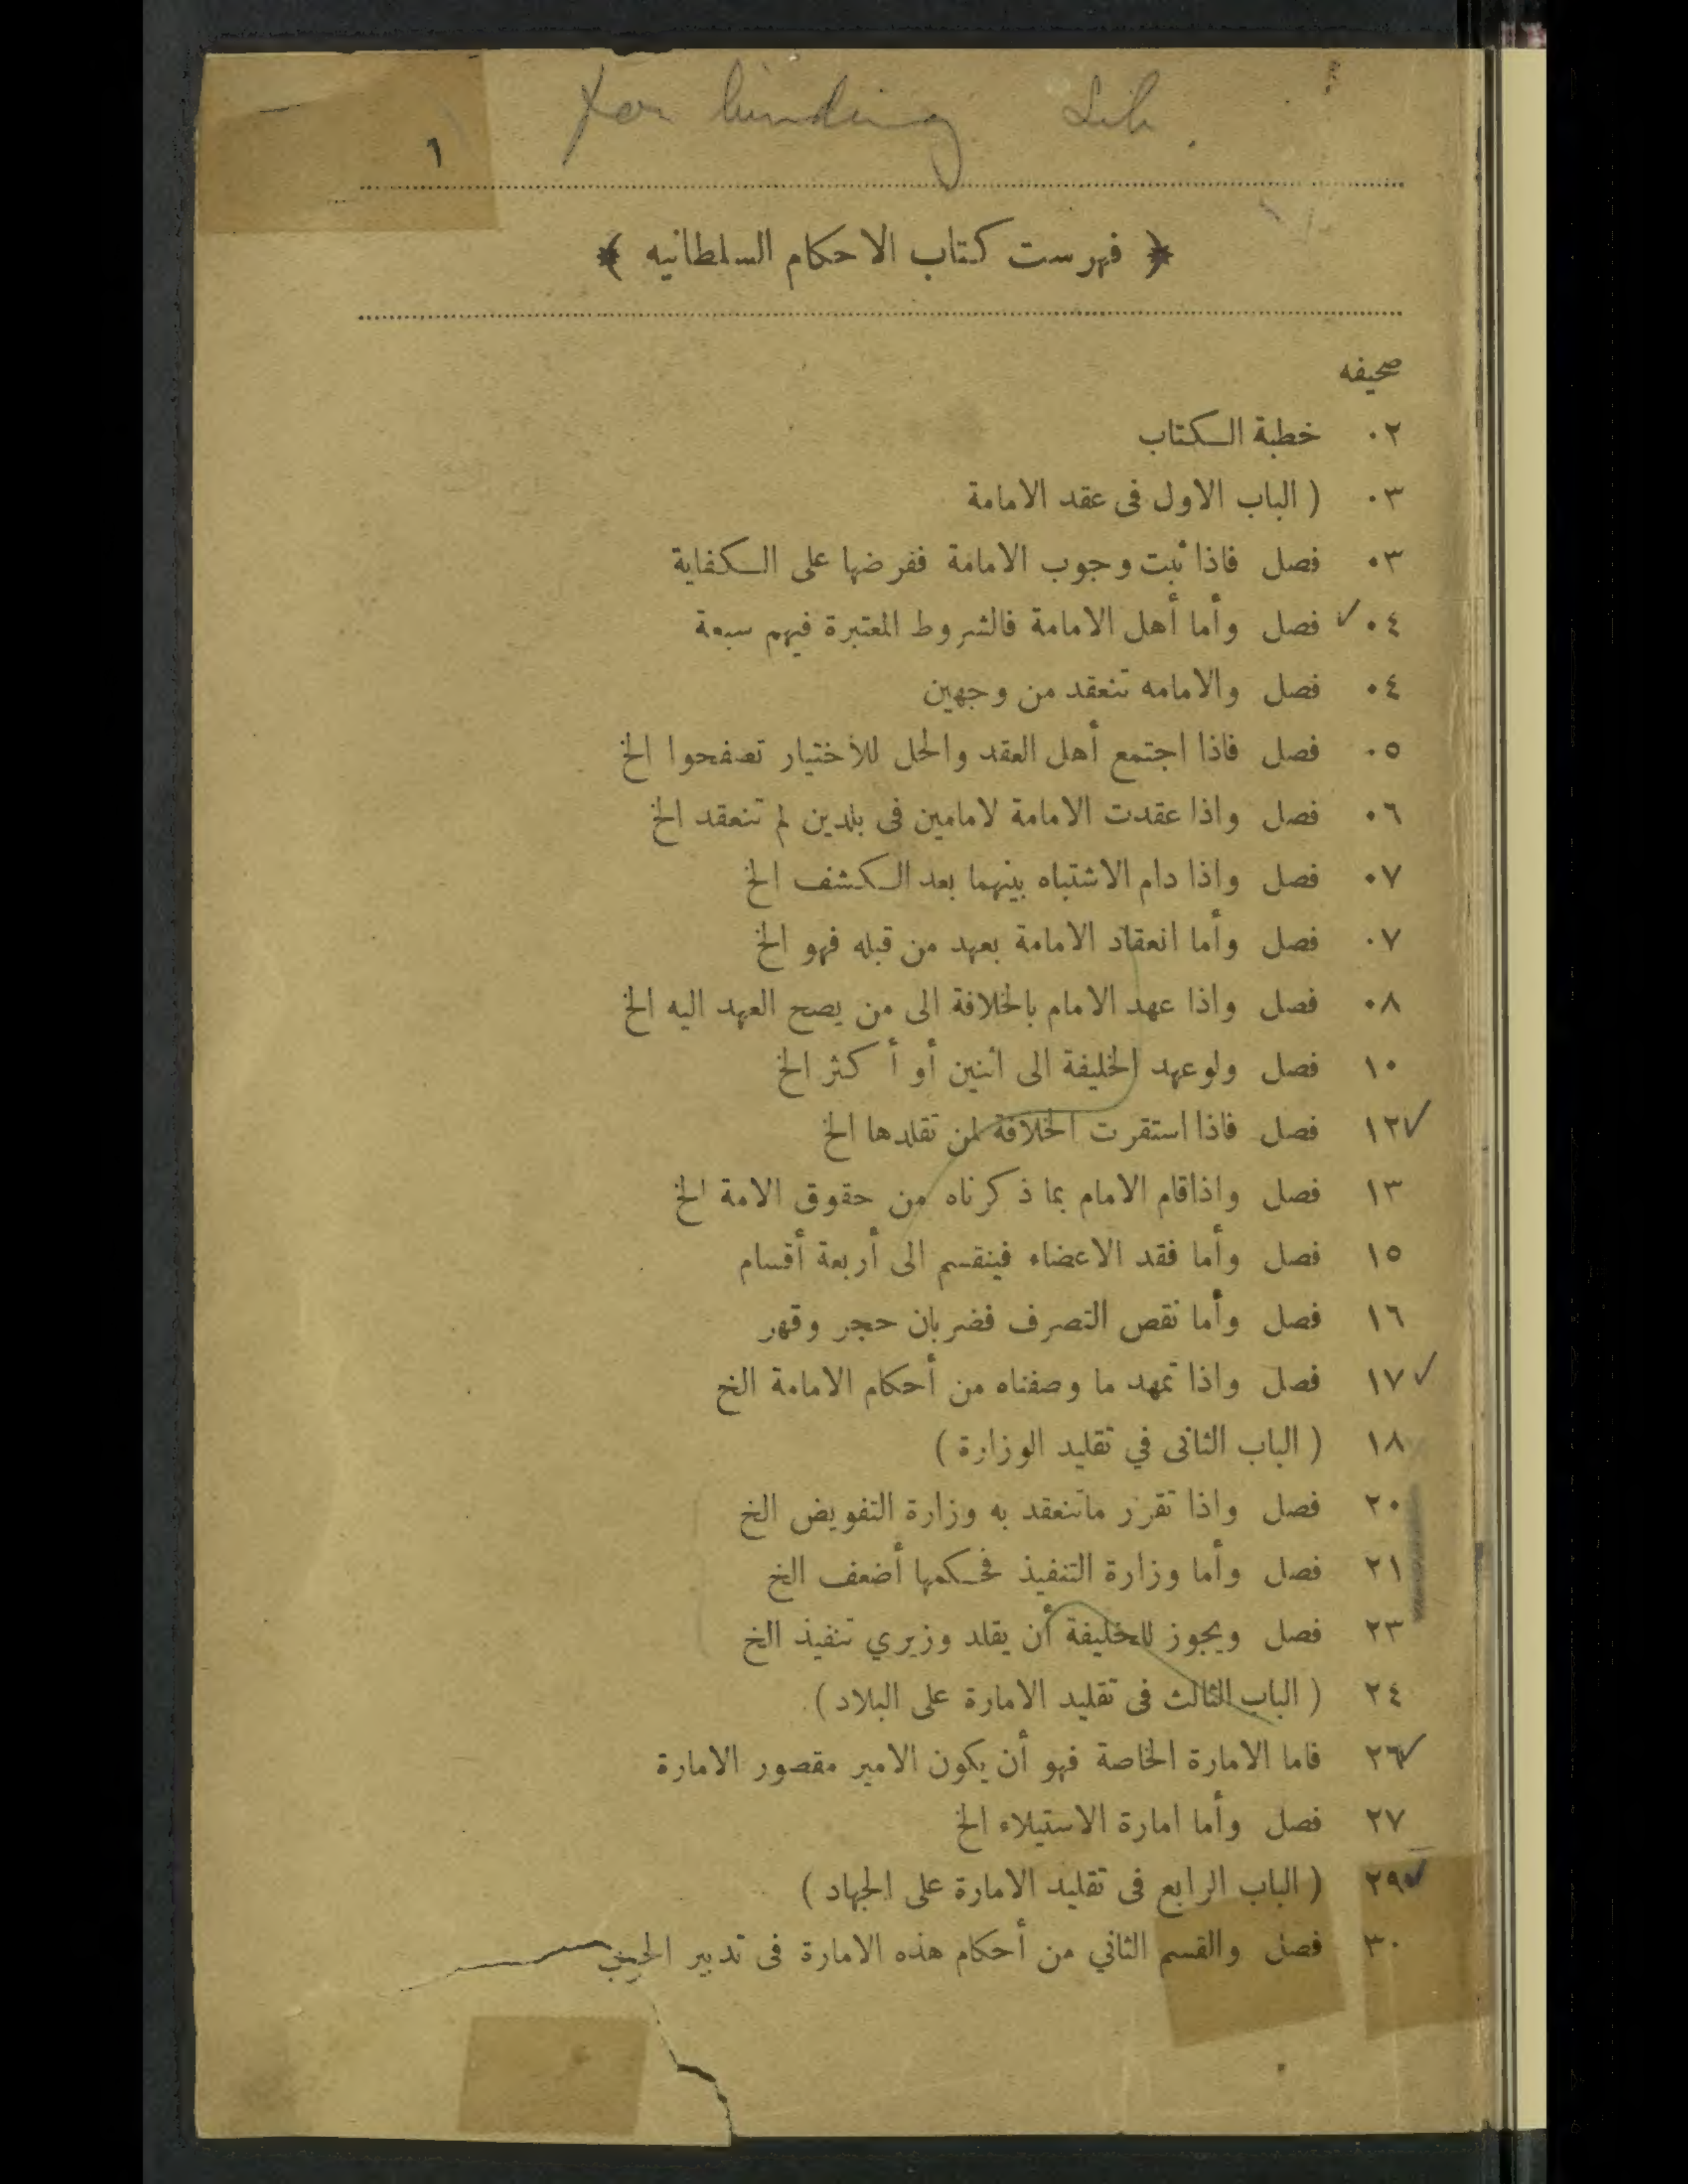 For binding Lib.
١
﴿ فهرست كتاب الاحكام السلطانيه ﴾
صحيفه
٠٢ خطبة الكتاب
٠٣ ( الباب الاول فى عقد الامامة
٠٣ فصل فاذا ثبت وجوب الامامة ففرضها على الكفاية
٠٤ ✓ فصل وأما أهل الامامة فالشروط المعتبرة فيهم سبعة
٠٤ فصل والامامه تنعقد من وجهين
٠٥ فصل فاذا اجتمع أهل العقد والحل للأختيار تصفحوا الخ
٠٦ فصل واذا عقدت الامامة لامامين فى بلدين لم تنعقد الخ
٠٧ فصل واذا دام الاشتباه بينهما بعد الكشف الخ
٠٧ فصل وأما انعقاد الامامة بعهد من قبله فهو الخ
٠٨ فصل واذا عهد الامام بالخلافة الى من يصح العهد اليه الخ
١٠ فصل ولو عهد الخليفة الى اثنين أو أكثر الخ
✓ ١٢ فصل فاذا استقرت الخلافة لمن تقلدها الخ
١٣ فصل واذاقام الامام بما ذكرناه من حقوق الامة الخ
١٥ فصل وأما فقد الاعضاء فينقسم الى أربعة أقسام
١٦ فصل وأما نقص التصرف فضربان حجر وقهر
✓ ١٧ فصل واذا تمهد ما وصفناه من أحكام الامامة الخ
١٨ ( الباب الثانى في تقليد الوزارة )
٢٠ فصل واذا تقرر ماتنعقد به وزارة التفويض الخ
٢١ فصل وأما وزارة التنفيذ فحكمها أضعف الخ
٢٣ فصل ويجوز للخليفة أن يقلد وزيري تنفيذ الخ
٢٤ ( الباب الثالث فى تقليد الامارة على البلاد )
✓ ٢٦ فاما الامارة الخاصة فهو أن يكون الامير مقصور الامارة
٢٧ فصل وأما امارة الاستيلاء الخ
✓ ٢٩ ( الباب الرابع فى تقليد الامارة على الجهاد )
٣٠ فصل والقسم الثاني من أحكام هذه الامارة فى تدبير